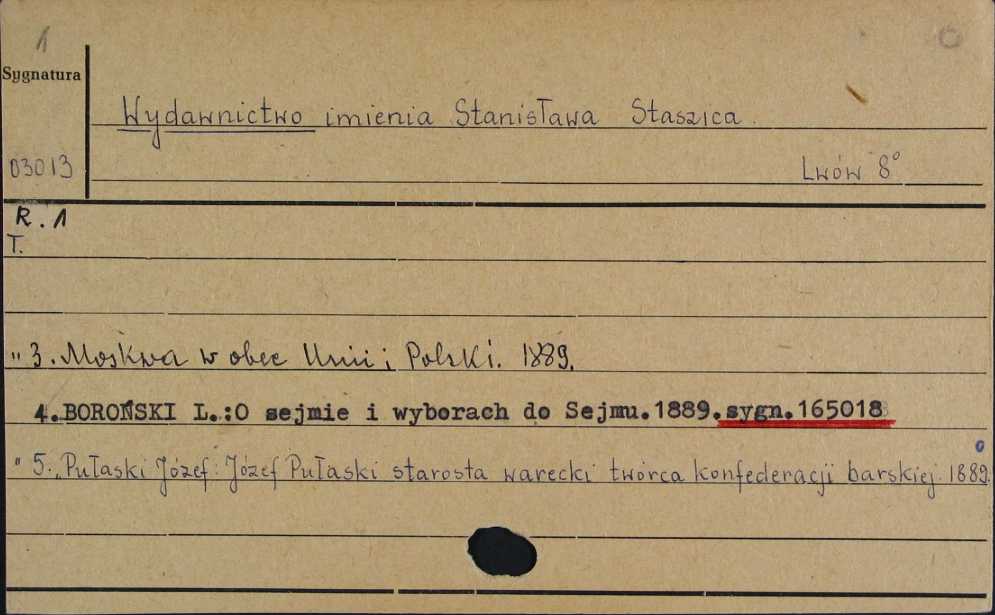 1
Sygnatura
Wydawnictwo imienia Stanisława Staszica.
03013
Lwów 8°
R. 1
T.
" 3. Moskwa w obec Unii i Polski. 1889.
4. BOROŃSKI L.:O sejmie i wyborach do Sejmu.1889.sygn.165018
" 5. Pułaski Józef: Józef Pułaski starosta warecki twórca konfederacji barskiej. 1889.